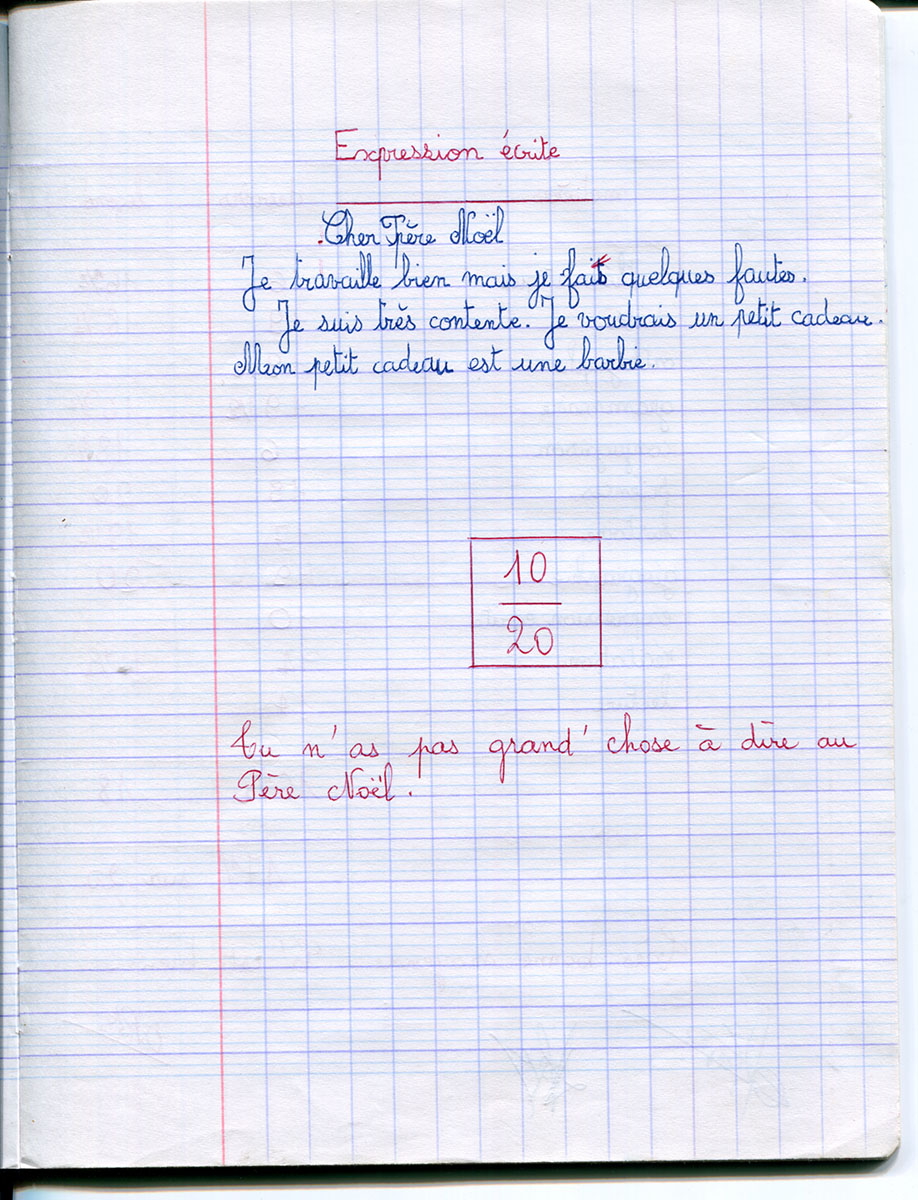 Expression écrite
Cher Père Noël
Je travaille bien mais je fais quelques fautes.
Je suis très contente. Je voudrais un petit cadeau.
Mon petit cadeau est une barbie.
10
20
Tu n'as pas grand' chose à dire au
Père Noël.